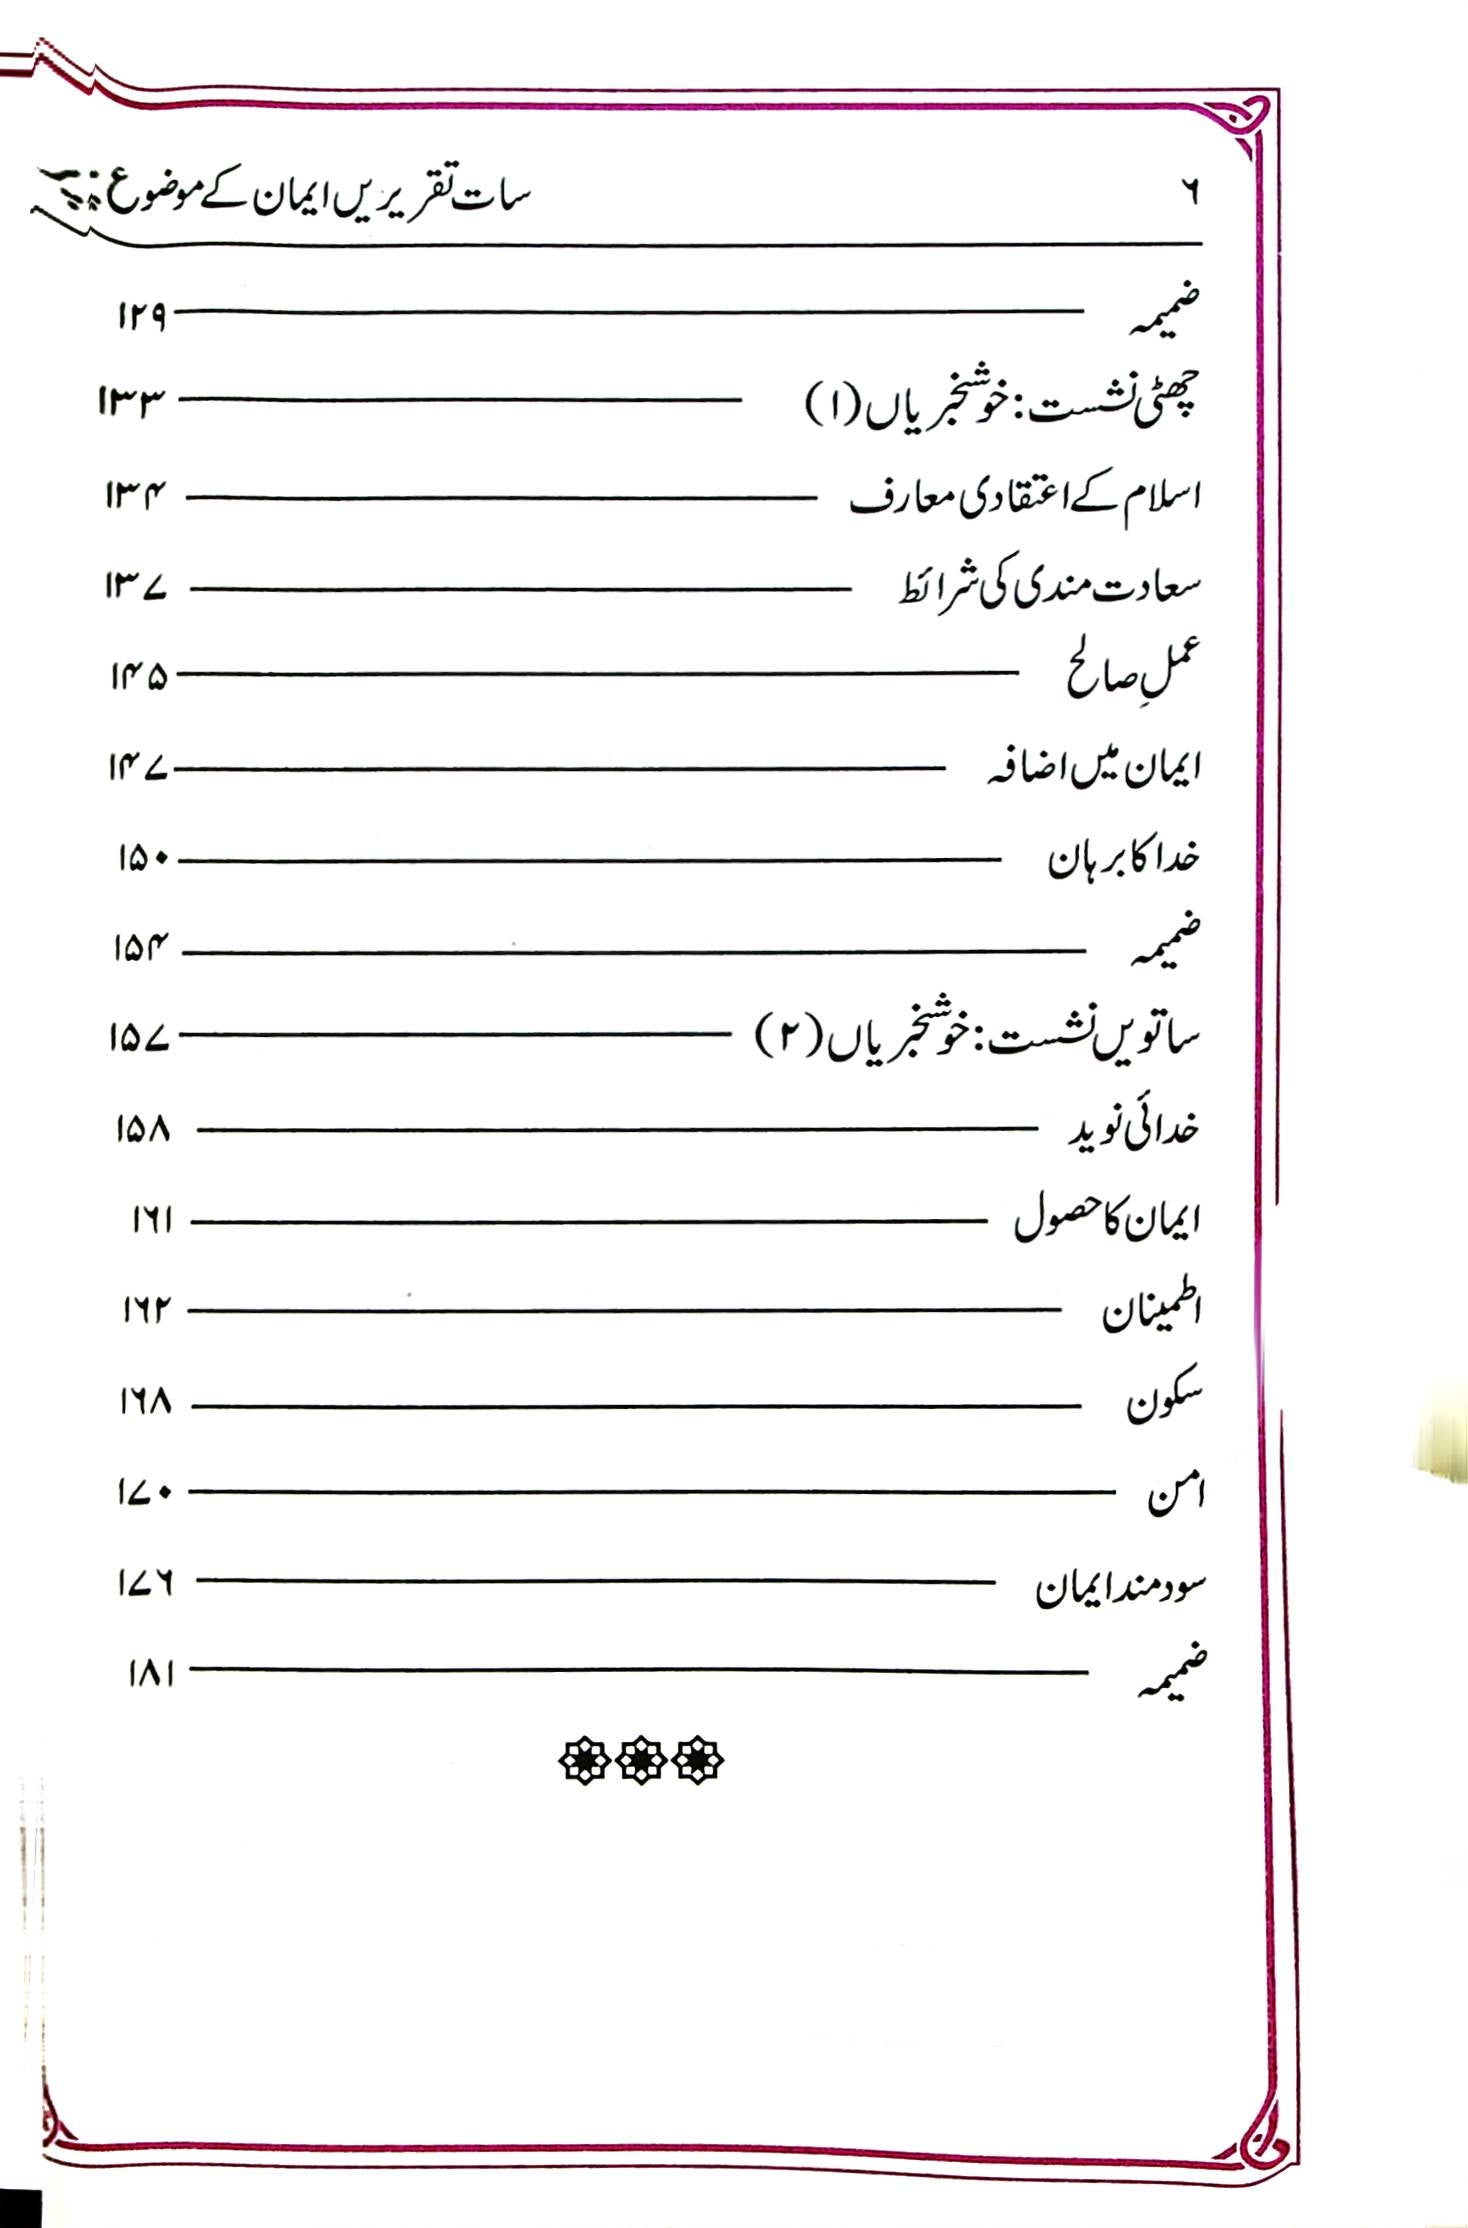 ۶ سات تقریریں ایمان کے موضوع
ضمیمہ ۱۲۹
چھٹی نشست: خوشخبریاں (۱) ۱۳۳
اسلام کے اعتقادی معارف ۱۳۴
سعادت مندی کی شرائط ۱۳۷
عملِ صالح ۱۴۵
ایمان میں اضافہ ۱۴۷
خدا کا برہان ۱۵۰
ضمیمہ ۱۵۴
ساتویں نشست: خوشخبریاں (۲) ۱۵۷
خدائی نوید ۱۵۸
ایمان کا حصول ۱۶۱
اطمینان ۱۶۲
سکون ۱۶۸
امن ۱۷۰
سودمند ایمان ۱۷۶
ضمیمہ ۱۸۱